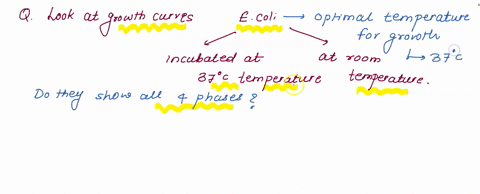 Q. Look at growth curves E.coli → optimal temperature
for growth
↳ 37°C
incubated at at room
37°C temperature temperature.
Do they show all 4 phases?